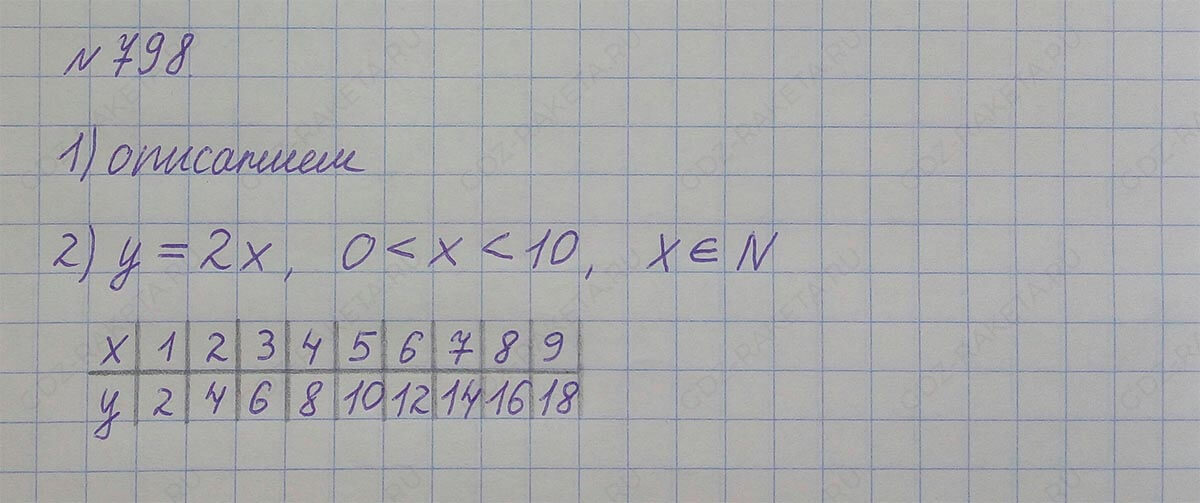 № 798
1) описанием
2) y = 2x, 0 < x < 10, x ∈ N
x 1 2 3 4 5 6 7 8 9
y 2 4 6 8 10 12 14 16 18
GDZ-RAKETA.RU